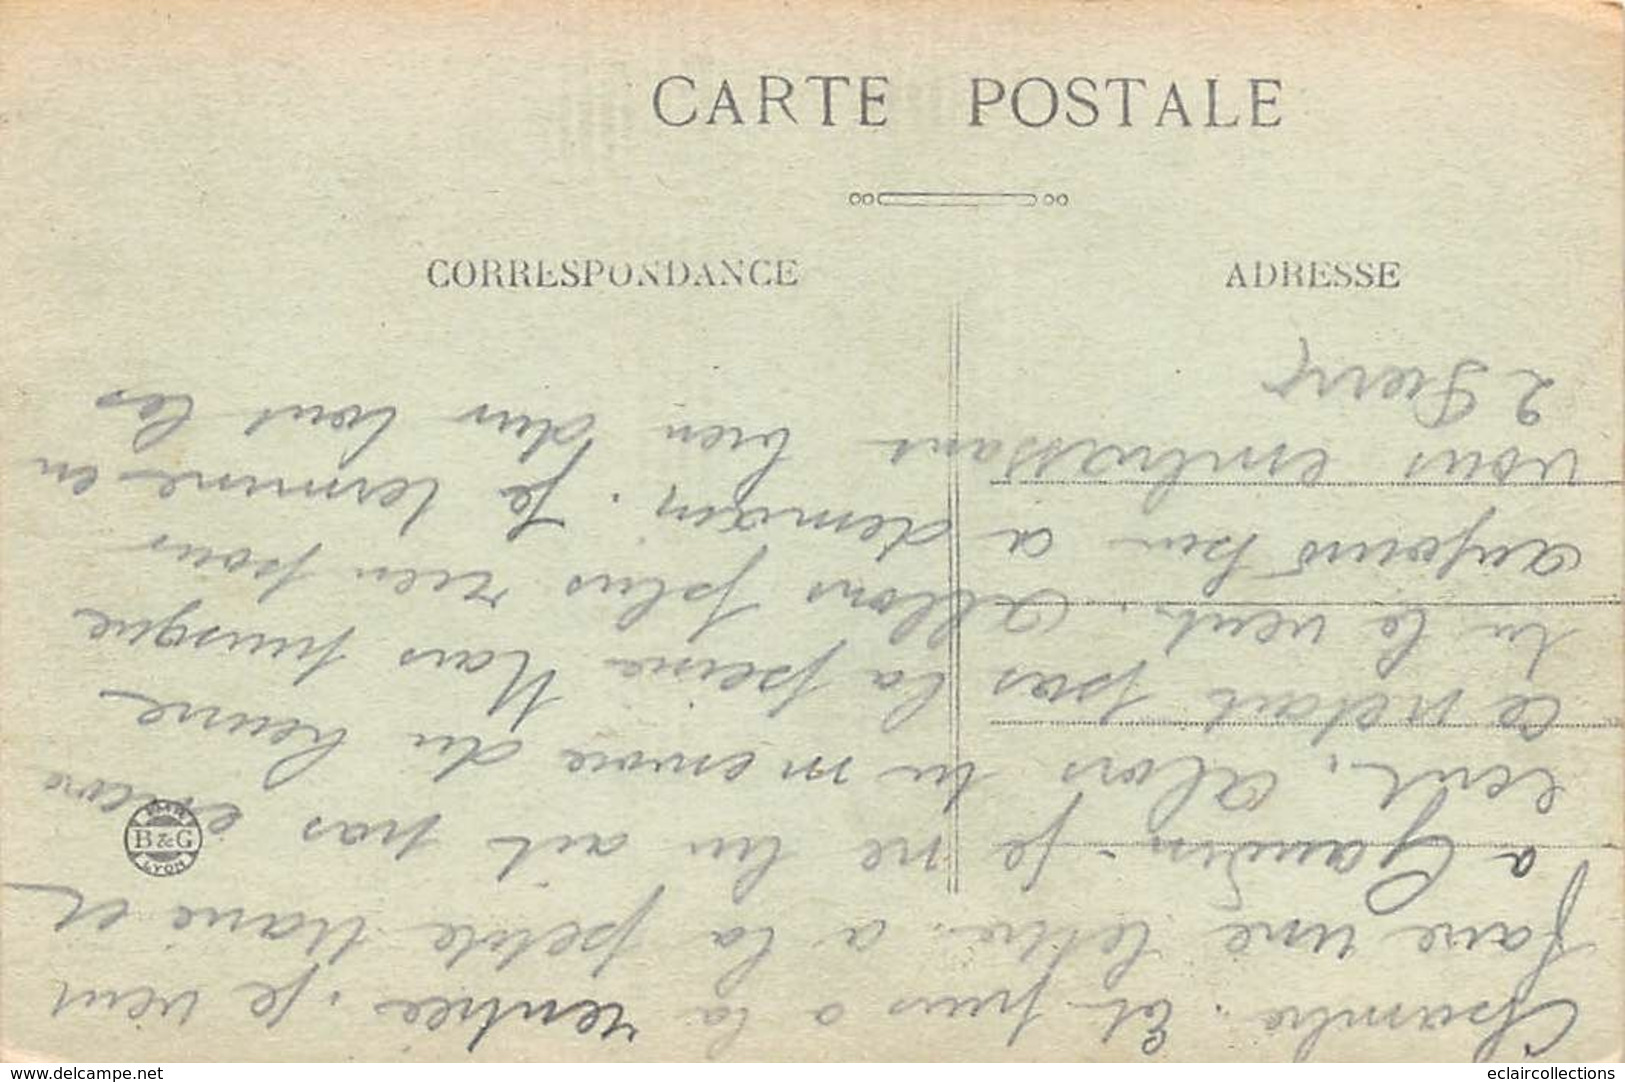 CARTE POSTALE
CORRESPONDANCE
ADRESSE
Chambre. Et puis a la rentrée. je vient
faire une lettre. a la petite Marie et
a Gaudin. je ne lui ait pas encore
ecrit. Alors tu m envoie du beurre
ce netait pas la peine Mais puisque
tu le veut. Allons plus rien pour
aujourd hui a demain. Je termine en
vous embrassant bien dur tout les
2 Pierre
EDITR
B&G
LYON
www.delcampe.net
eclaircollections